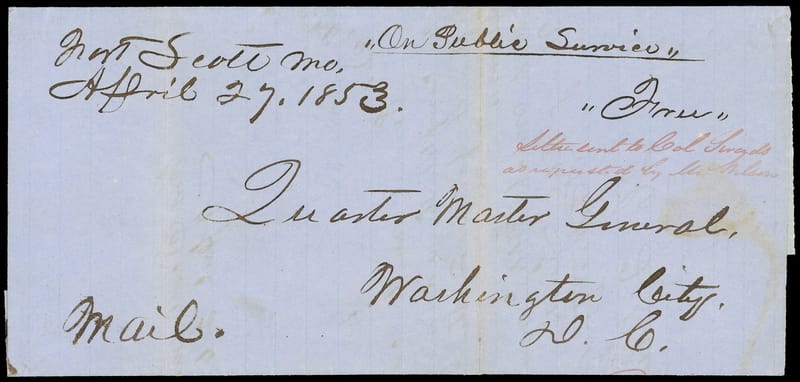 Fort Scott Mo.
April 27. 1853.
"On Public Service"
"Free"
Letter sent to Col Swords
as requested by Mr Wilson
Quarter Master General.
Washington City.
D. C.
Mail.